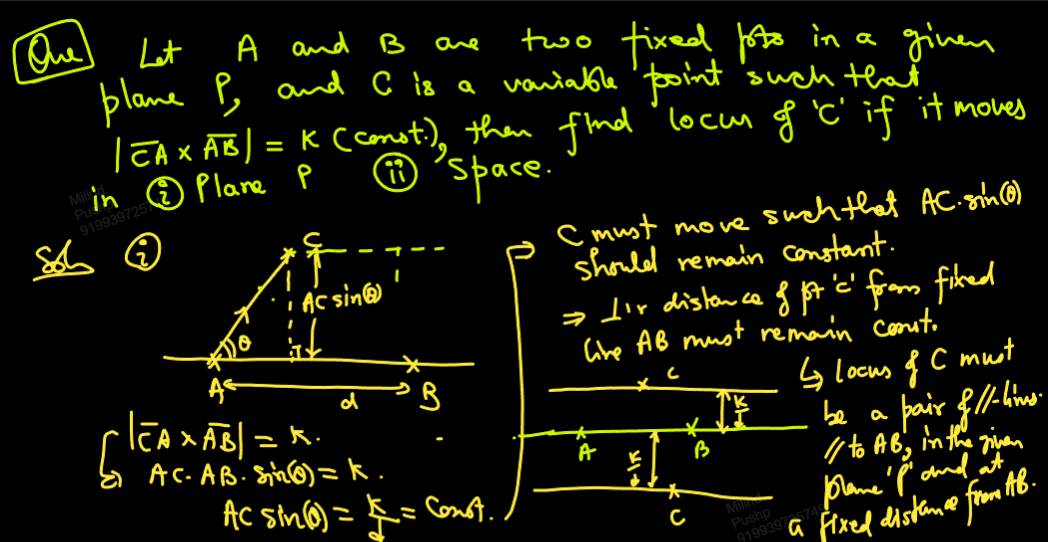 Que Let A and B are two fixed pts in a given
plane P, and C is a variable point such that
|CA × AB| = K (const.), then find locus of 'C' if it moves
in (i) Plane P (ii) space.
Soln (i)
C
AC sin(θ)
θ
A
d
B
|CA × AB| = k.
AC. AB. sin(θ) = k.
AC sin(θ) = k/d = const.
⇒ C must move such that AC.sin(θ)
should remain constant.
⇒ ⊥'r distance of pt 'c' from fixed
line AB must remain const.
↳ locus of C must
be a pair of //-lines.
// to AB, in the given
plane 'P' and at
a fixed distance from AB.
C
k/d
A
B
k/d
C
Pushp